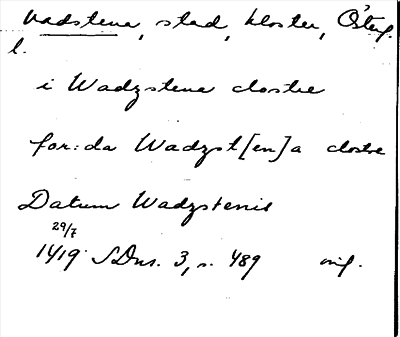 Vadstena, stad, kloster, Österg.
l.
i Wadzstena clostre
for:da Wadzst[en]a clostre
Datum Wadzstenis
29/7
1419 SDns. 3, s. 489 orig.